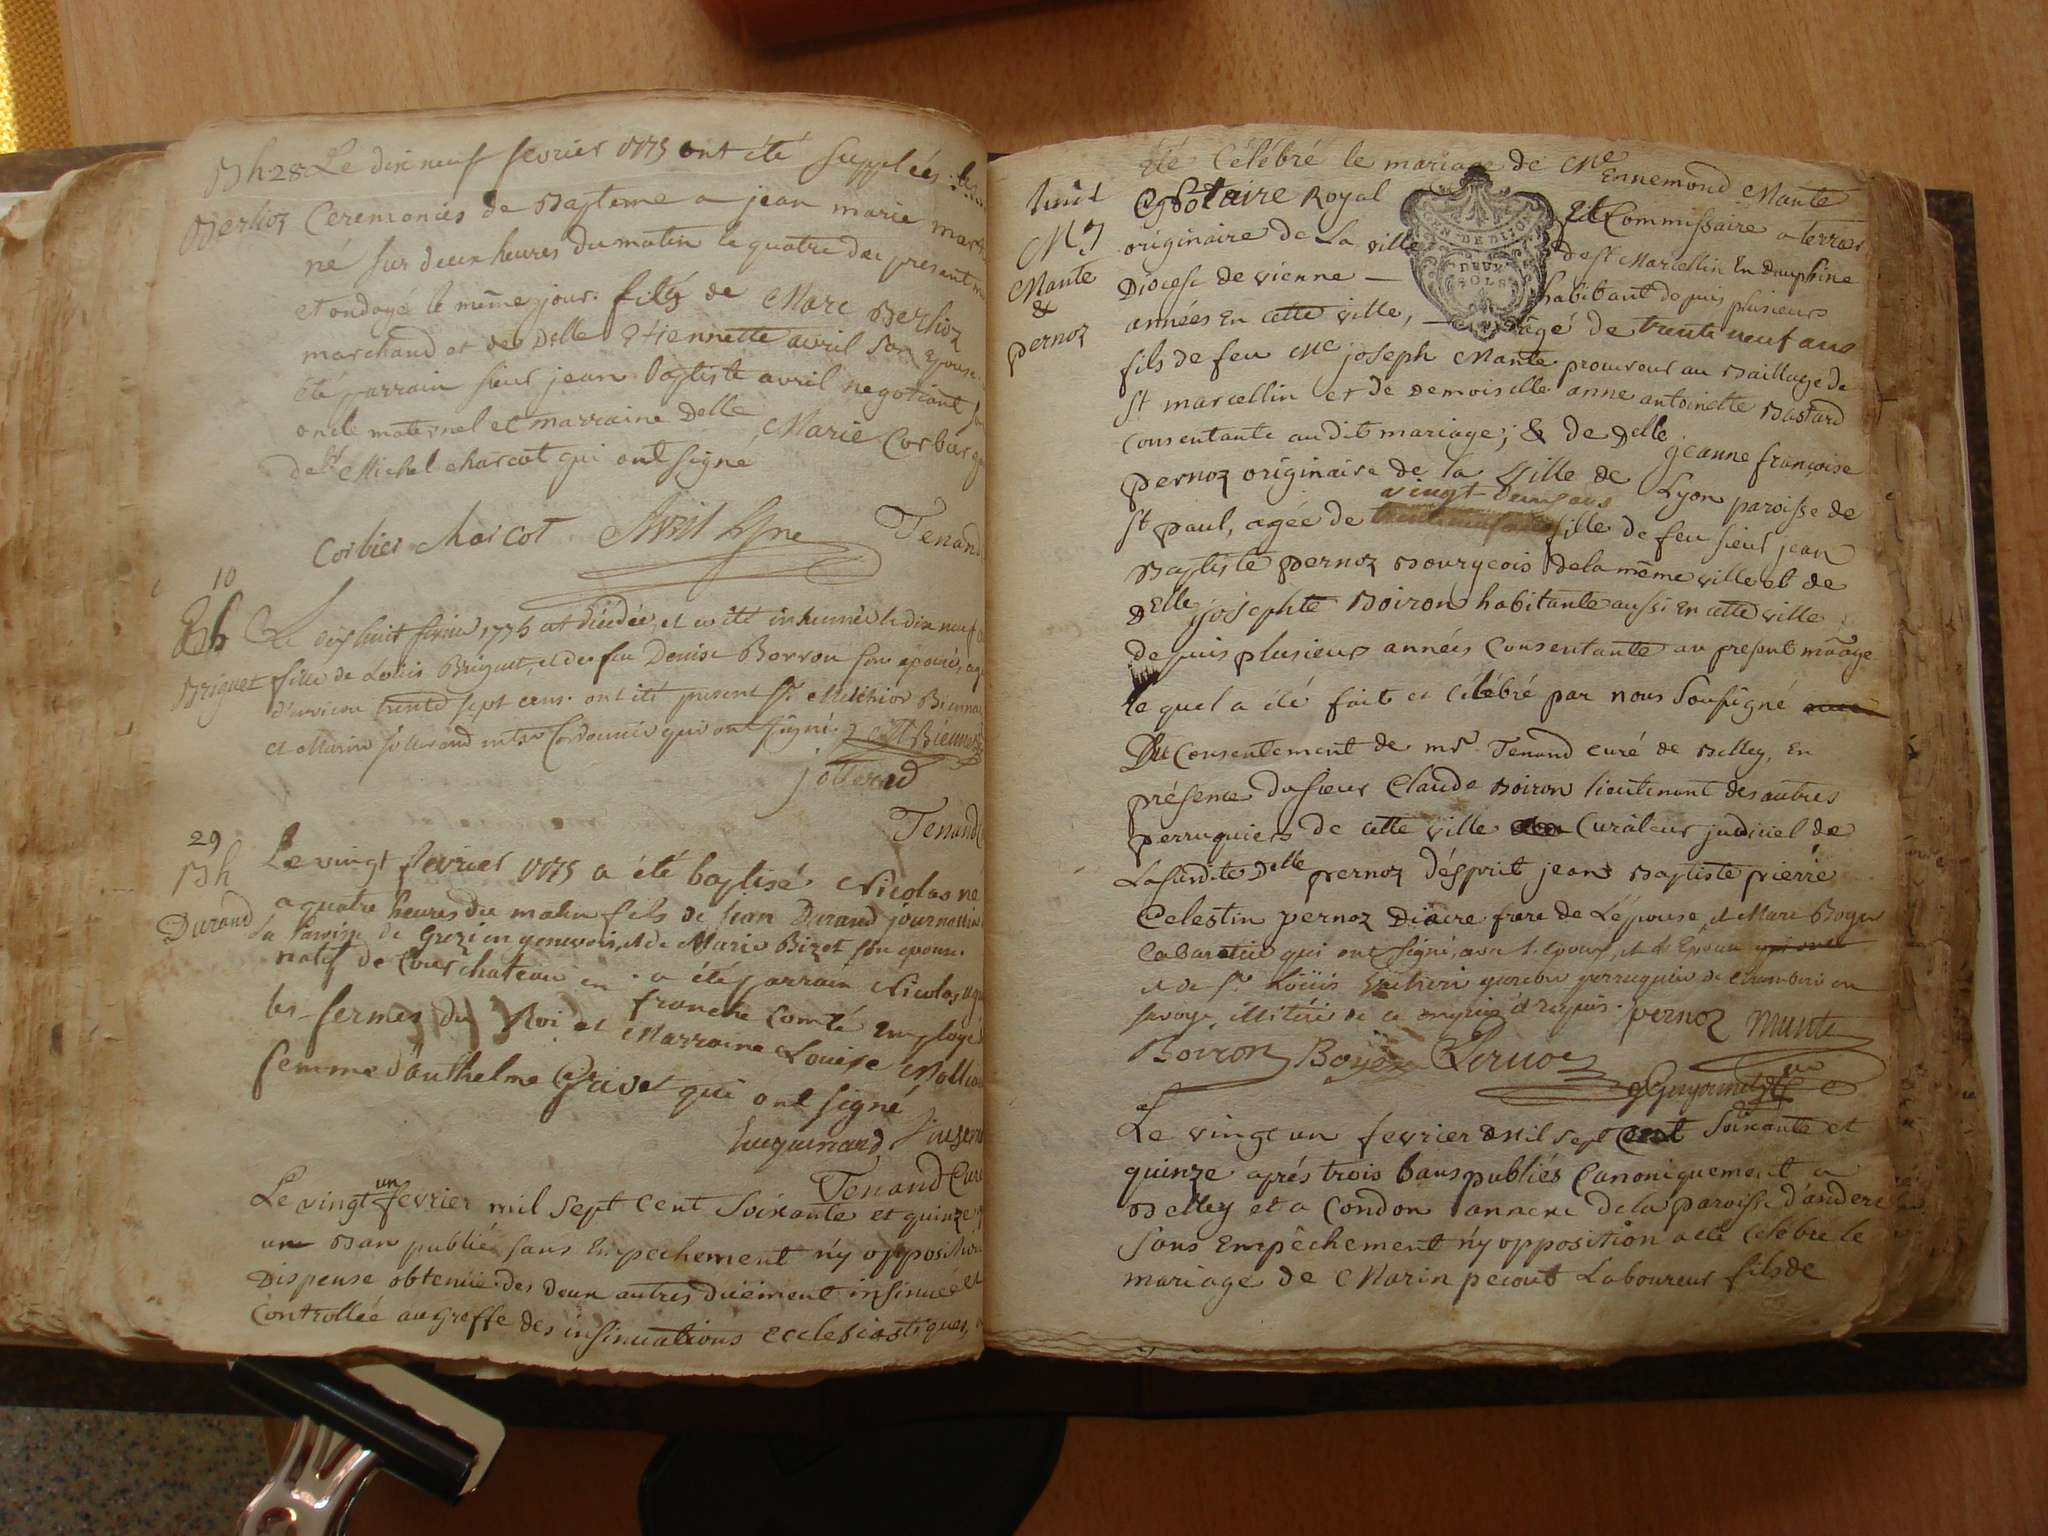 Bh. 28 Le dix neuf fevrier 1775 ont été supplées les
Berlioz Ceremonies de Bapteme a jean marie
né sur deux heures du matin le quatre du present
et ondoyé le même jour. fils de Marc Berlioz
marchand et de Delle Etiennette avril son epouse
été parrain sieur jean baptiste avril negotiant
oncle maternel et marraine Delle Marie Corbier
de Sr Michel charcot qui ont signé
Corbier Charcot Avril Tenand
10
Le dix huit fevrier 1775 est décédée, et a été inhumée le dix neuf
Briguet fille de Louis Briguet, et de feu Denise Borron son épouse, agée
d'environ trente sept ans. ont été present Sr Melchior
et Marin jotterand cordonnier qui ont signé.
jotterand
Tenand
29
Bh
Durand
Le vingt fevrier 1775 a été baptisé Nicolas né
a quatre heures du matin fils de jean Durand journallier
de la Paroisse de Grezien genevois, et de Marie Bizot son epouse.
natif de Courchateau en franche Comté Employé
a été parrain Nicolas
les fermes du Roi et Marraine Louise
femme d'anthelme Grivet qui ont signé
Huguenard
Tenand Curé
Le vingt un fevrier mil sept cent soixante et quinze
un Ban publié sans Empechement n'y opposition
Dispense obtenüe des deux autres düement insinuée et
Controllée au Greffe des insinuations ecclesiastiques,
été Célébré le mariage de Me Ennemond Mante
Notaire Royal Et Commissaire a terrier
originaire de La ville de St Marcellin En Dauphiné
Diocese de vienne — habitant depuis plusieurs
années En cette ville, — agé de trente neuf ans
Mante
&
pernoz
DEUX
SOLS
fils de feu Me joseph Mante procureur au Bailliage de
St marcellin et de Demoiselle anne antoinette Bastard
Consentante audit mariage; & de Delle jeanne françoise
pernoz originaire de la ville de Lyon paroisse de
vingt
St paul, agée de fille de feu sieur jean
Baptiste pernoz Bourgeois de la même ville et de
Delle josephte Boiron habitante aussi En cette ville
depuis plusieurs années Consentante au present mâage
le quel a été fait et célébré par nous soussigné
Du Consentement de mr. Tenand curé de Belley, en
présence du sieur Claude Boiron lieutenant des autres
perruquiers de cette ville Curateur judiciel de
La susdite Delle pernoz d'ésprit jean Baptiste pierre
Celestin pernoz Diacre frere de L'épouse, et Marc Boyer
Cabaretier qui ont signé, avec l'epoux, et l'Epouse
et de Sr Loüis garcon perruquier de Chambéri en
savoye, illitéré de ce enquis et requis. pernoz Mante
Boiron Boyer Pernoz
Le vingt un fevrier Mil sept Cent Soixante et
quinze aprés trois bans publiés Canoniquement a
Belley et a Condon annexe de la paroisse d'andert
sans Empêchement n'y opposition a été Célébré le
mariage de Marin pecout Laboureur fils de